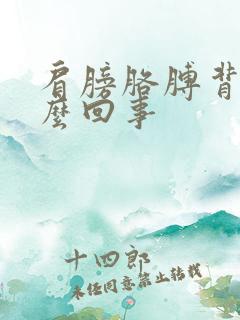 肩膀胳膊背
麼回事
十四郎
未经同意禁止转载